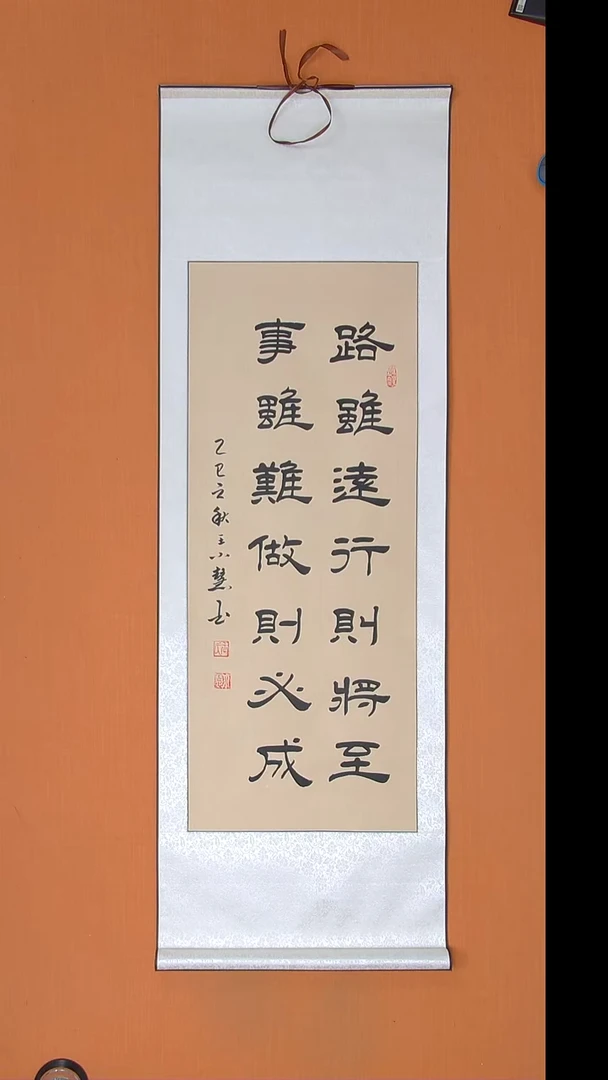 路雖遠行則將至
事雖難做則必成
乙巳立秋王小慧书